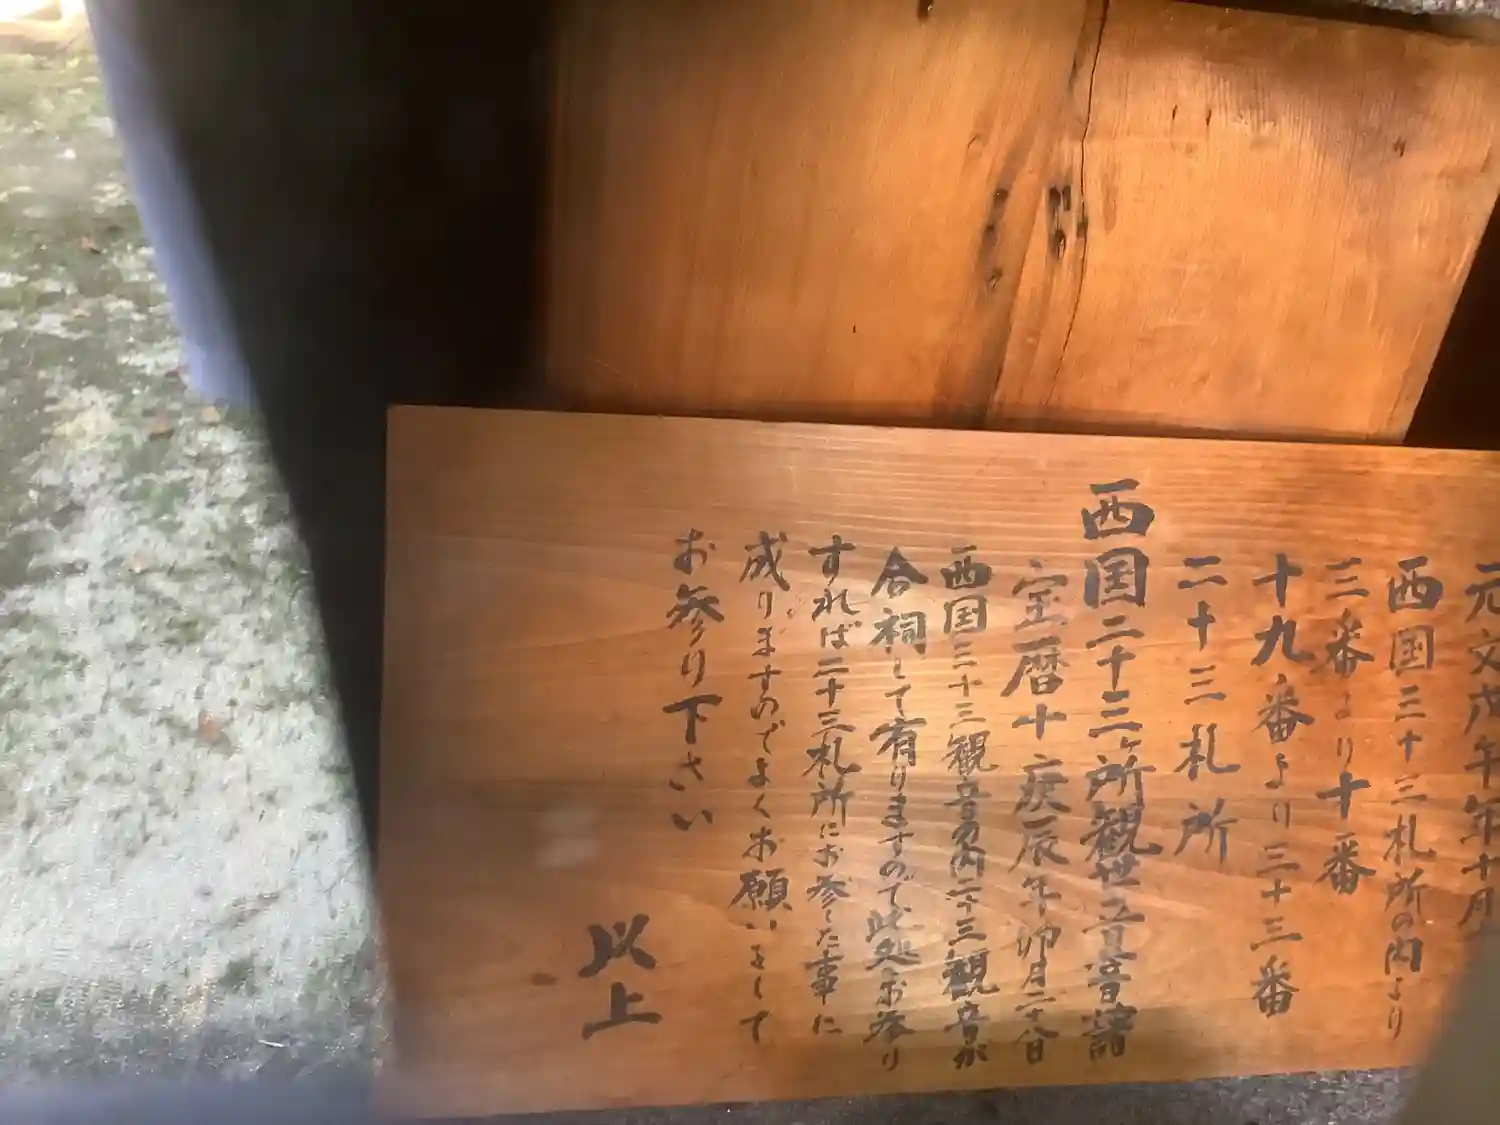 元文戊午年十月
西国三十三札所の内より
三番より十番
十九番より三十三番
二十三札所
西国二十三ヶ所観世音菩
宝暦十庚辰年卯月二十八日
西国三十三観音の内二十三観音が
合祠して有りますので、此処にお参り
すれば二十三札所にお参りした事に
成りますのでよくお願いをして
お参り下さい
以上